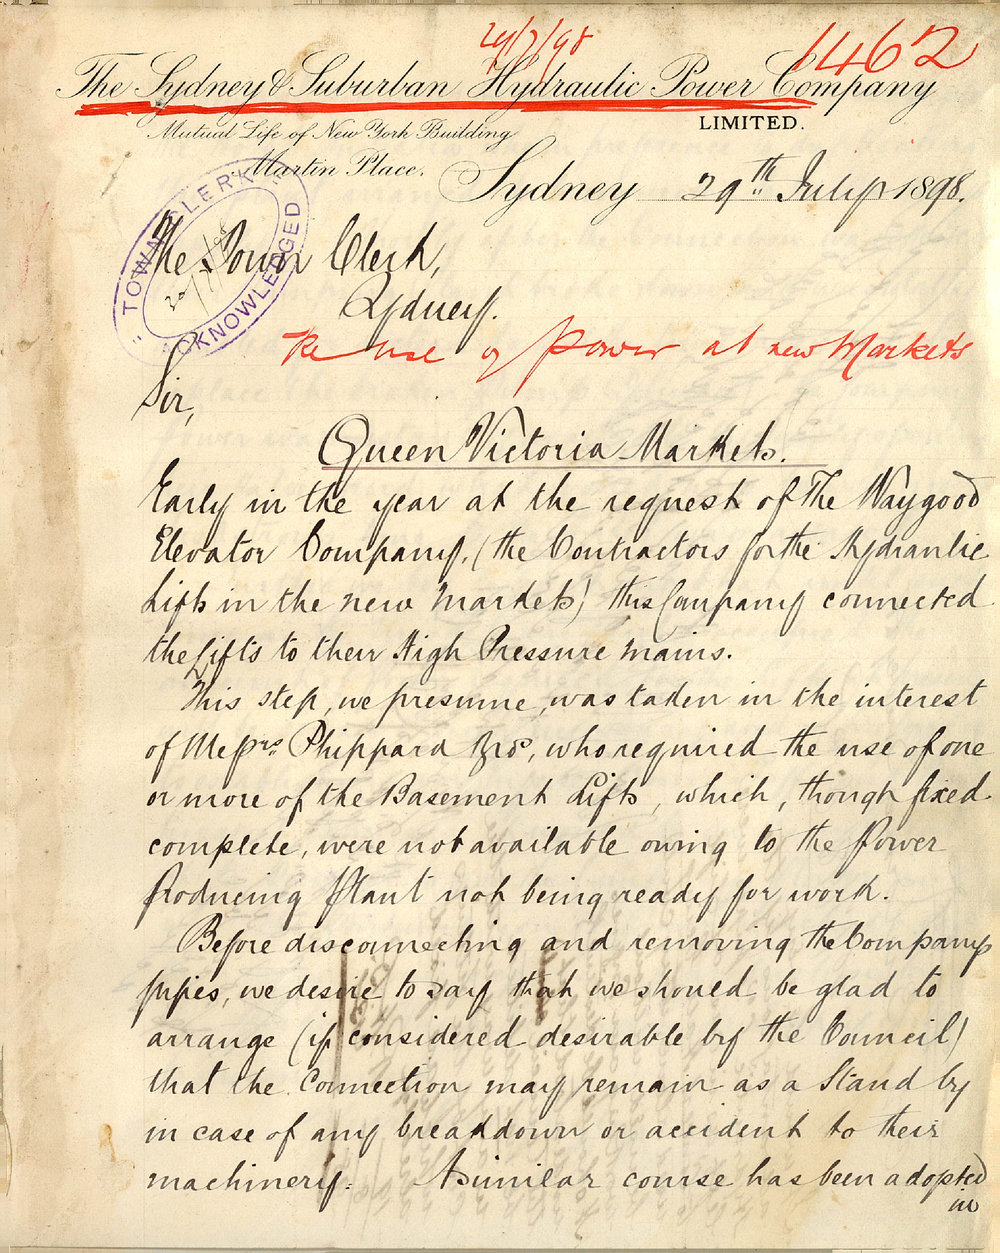 29/7/98
1462
The Sydney & Suburban Hydraulic Power Company
LIMITED.
Mutual Life of New York Building
Martin Place.
Sydney 29th July 1898.
TOWN CLERK
ACKNOWLEDGED
The Town Clerk,
Sydney.
Re use of Power at new Markets
Sir,
Queen Victoria Markets.
Early in the year at the request of The Waygood
Elevator Company, (the Contractors for the Hydraulic
Lifts in the new Markets) this Company connected
the Lifts to their High Pressure mains.
This step, we presume, was taken in the interest
of Messrs Phippard Bros, who required the use of one
or more of the Basement Lifts, which, though fixed
complete, were not available owing to the Power
Producing Plant not being ready for work.
Before disconnecting and removing the Company
pipes, we desire to say that we should be glad to
arrange (if considered desirable by the Council)
that the Connection may remain as a Stand by
in case of any breakdown or accident to their
machinery. A similar course has been adopted
in